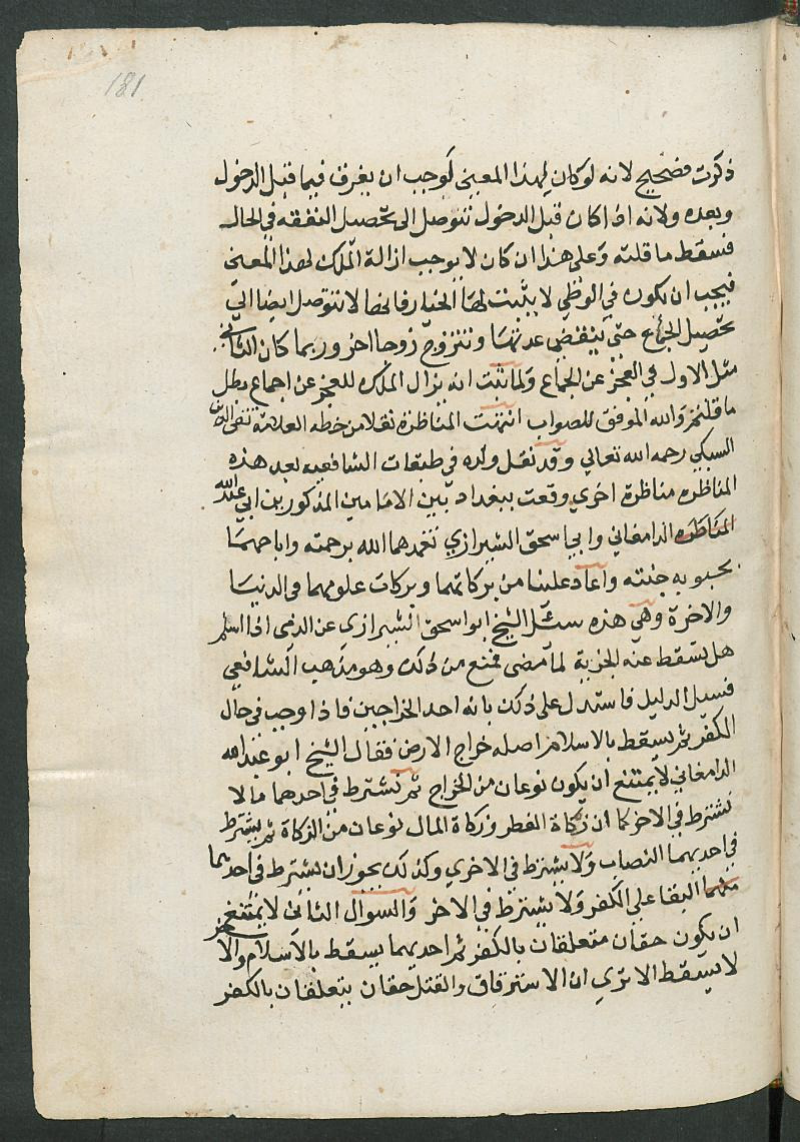 181
ذكرت فصحيح لانه لو كان لهذا المعنى لوجب ان يفرق فيما قبل الدخول
وبعده ولانه اذا كان قبل الدخول تتوصل الى تحصيل النفقه في الحال
فسقط ما قلته وعلى هذا ان كان لا يوجب ازالة الملك لهذا المعنى
فيجب ان يكون في الوطي لا يثبت لها الخيار فانها لا تتوصل ايضا الى
تحصيل الجماع حتى ينقضي عدتها وتتزوج زوجا اخر وربما كان الثاني
مثل الاول في العجز عن الجماع ولما ثبت انه يزال الملك للعجز عن اجماع بطل
ما قلتم والله الموفق للصواب انتهت المناظره نقلا من خطه العلامه تقي الدين
السبكي رحمه الله تعالى وقد نقل ولده في طبقات الشافعيه بعد هذه
المناظره مناظرة اخري وقعت ببغداد بين الامامين المذكورين ابي عبد الله
المناظره الدامغاني وابي اسحق الشيرازي تغمدهما الله برحمته واباحهما
بحبوبه جنته واعاد علينا من بركاتهما وبركات علومهما في الدنيا
والاخرة وهي هذه سئل الشيخ ابو اسحق الشيرازي عن الذمي اذا اسلم
هل تسقط عنه الجزية لما مضى فمنع من ذلك وهو مذهب الشافعي
فسيل الدليل فاستدل على ذلك بانه احد الخراجين فاذا وجب في حال
الكفر لم يسقط بالاسلام اصله خراج الارض فقال الشيخ ابو عبد الله
الدامغاني لا يمتنع ان يكون نوعان من الخراج ثم تشترط في احدهما ما لا
تشترط في الاخر كما ان زكاة الفطر وزكاة المال نوعان من الزكاة ثم يشترط
في احديهما النصاب ولا يشترط في الاخري وكذلك يجوز ان يشترط في احديهما
منهما البقا على الكفر ولا يشترط في الاخر والسوال الثاني لا يمتنع
ان يكون حقان متعلقان بالكفر ثم احديهما يسقط بالاسلام والاخر
لا يسقط الا تري ان الاسترقاق والقتل حقان يتعلقان بالكفر